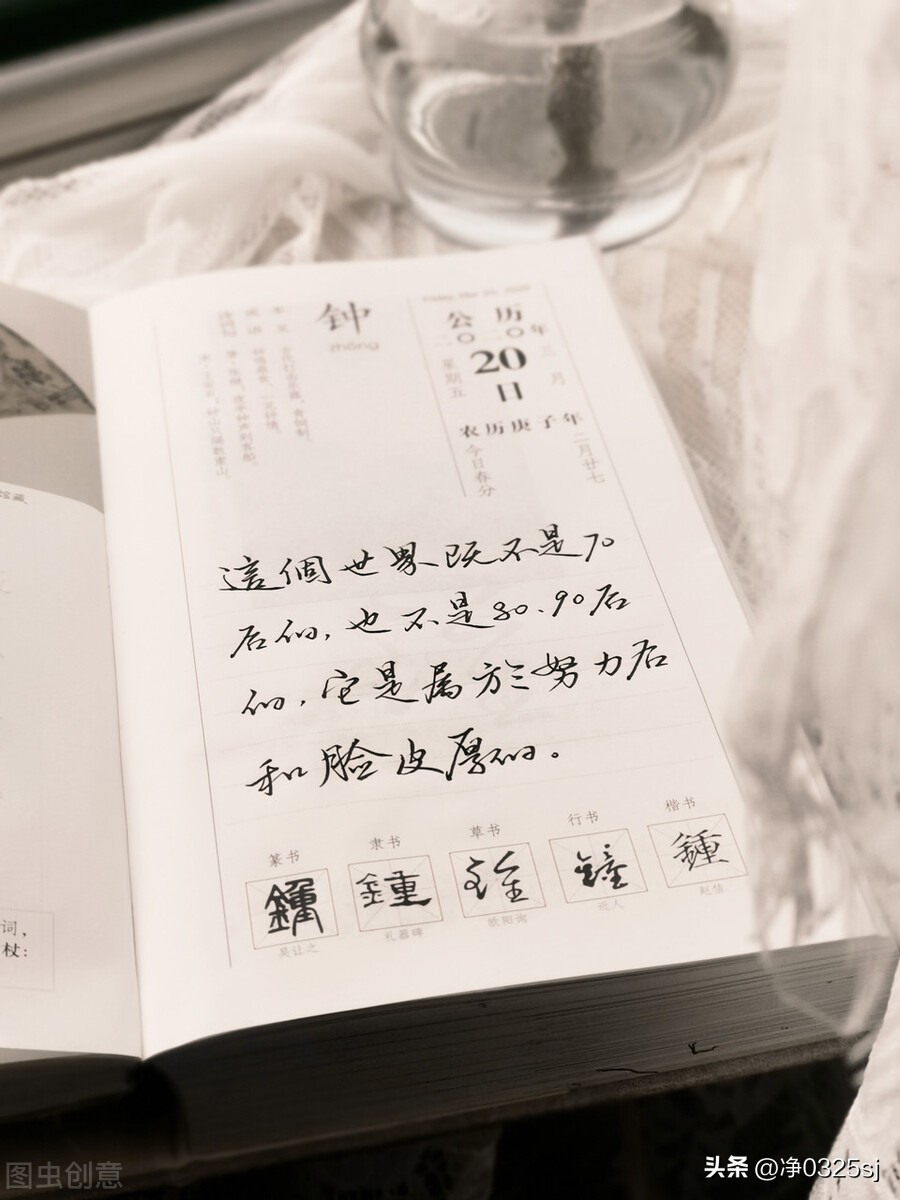 钟
zhōng
公历
二〇二〇年
三月
20
日
星期五
农历庚子年
二月廿七
今日春分
這個世界既不是70
后的,也不是80、90后
的,它是属於努力后
和脸皮厚的。
篆书 隶书 草书 行书 楷书
鍾 鍾 鍾 鐘 鍾
吴让之 礼器碑 欧阳询 近人 赵佶
馆藏
词,
杖:
图虫创意
头条 @净0325sj